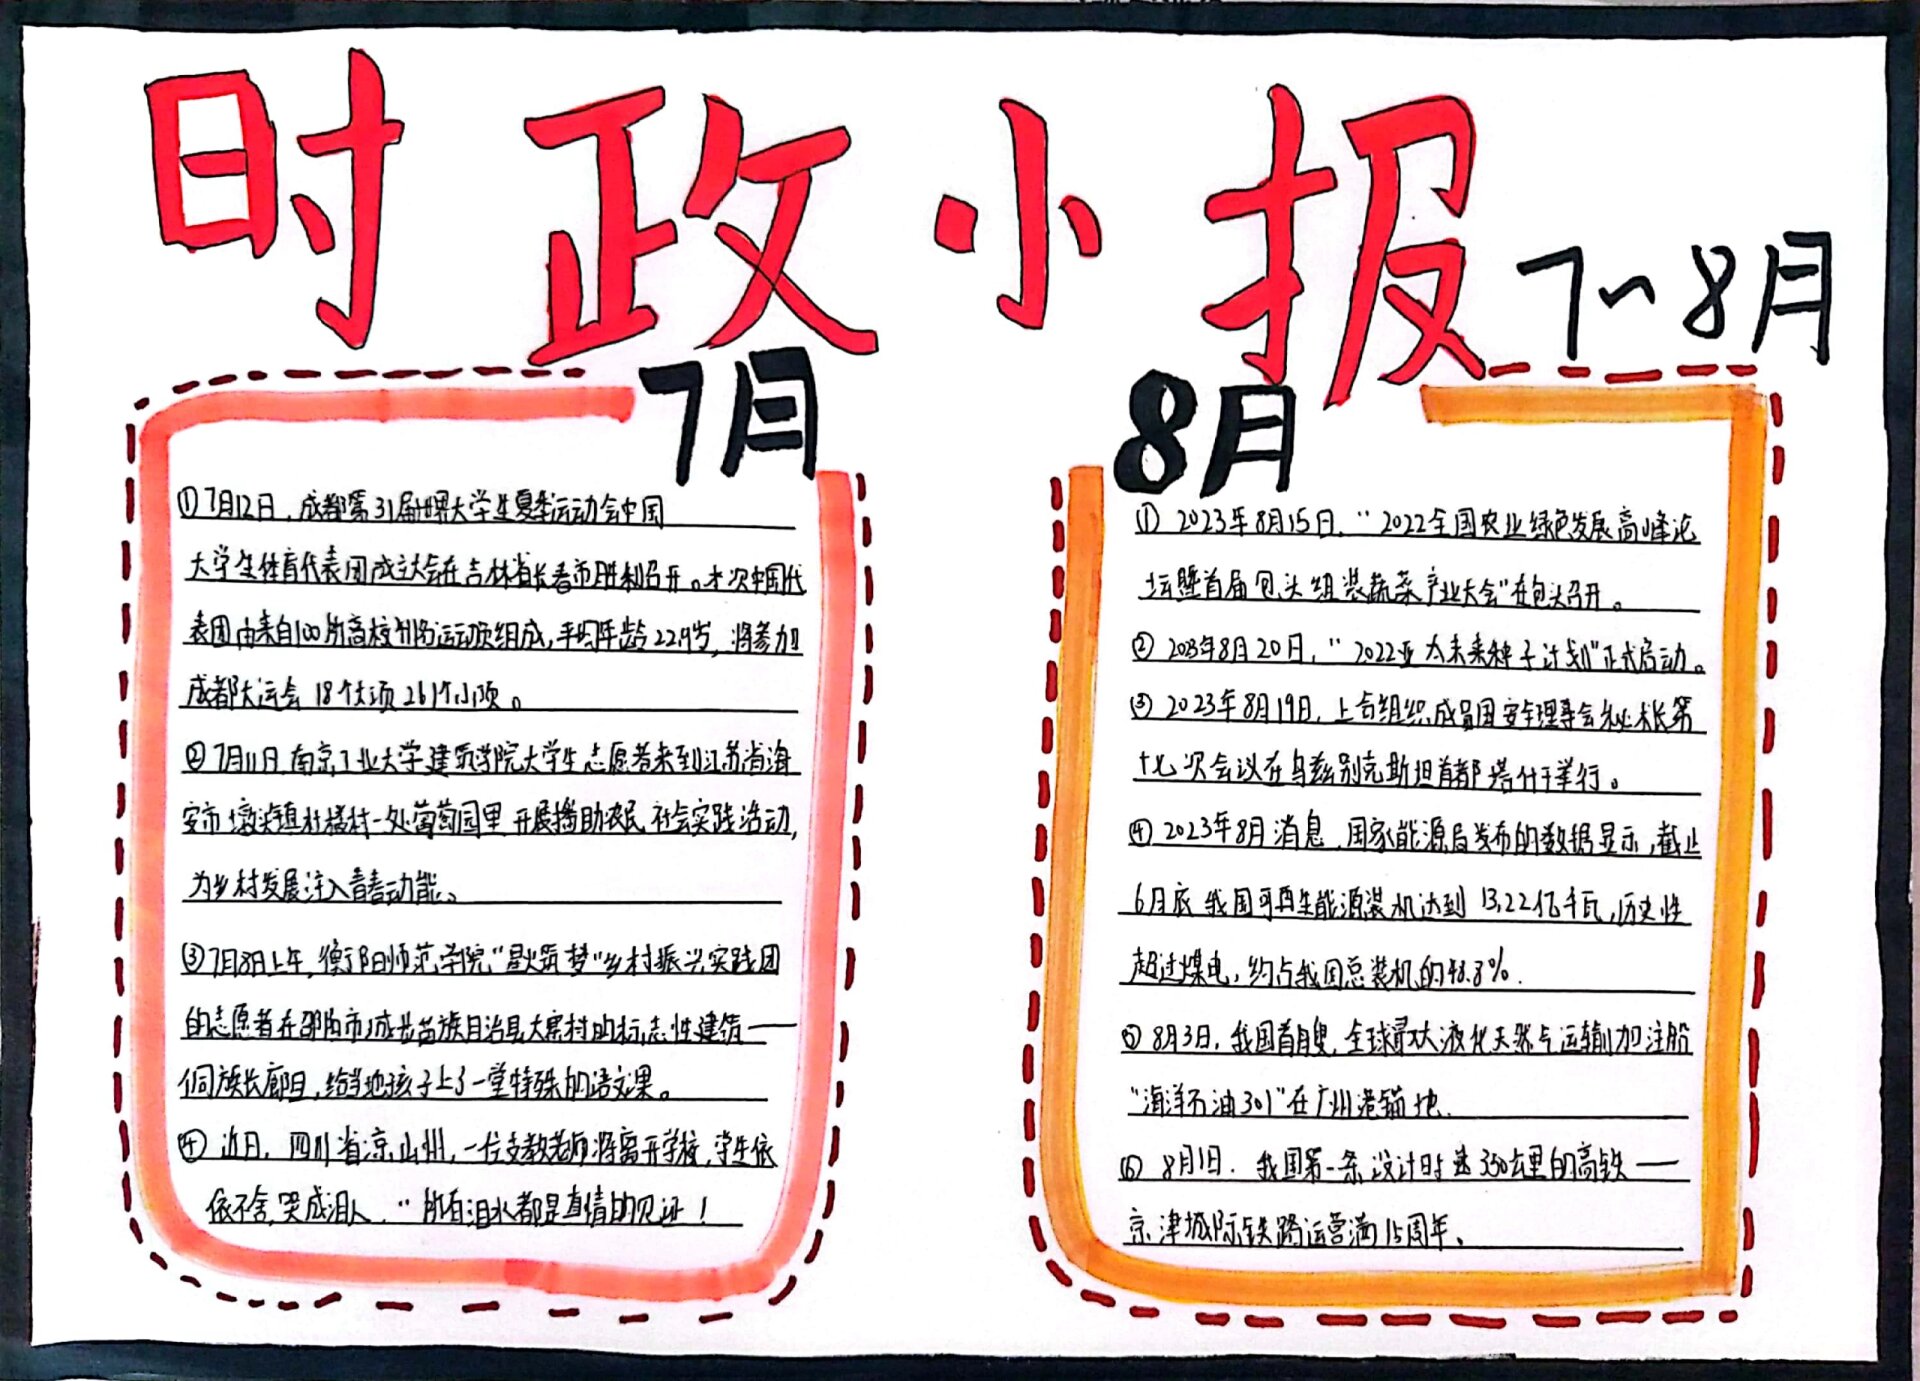 时政小报
7~8月
7月
①7月12日,成都第31届世界大学生夏季运动会中国
大学生体育代表团成立大会在吉林省长春市胜利召开。本次中国代
表团由来自100所高校 运动员组成,平均年龄22.9岁,将参加
成都大运会 18个大项 261个小项。
②7月11日,南京工业大学建筑学院大学生志愿者来到江苏省海
安市墩头镇杜楼村一处葡萄园里 开展援助农民 社会实践活动,
为乡村发展注入青春动能。
③7月8日上午,衡阳师范学院“星火筑梦”乡村振兴实践团
的志愿者在邵阳市城步苗族自治县大寨村的标志性建筑——
侗族长廊里,给当地孩子上了一堂特殊的语文课。
④ 近日,四川省凉山州,一位支教老师将离开学校,学生依
依不舍,哭成泪人,“所有泪水都是真情的见证!
8月
① 2023年8月15日,“2022全国农业绿色发展高峰论
坛暨首届包头组装蔬菜产业大会”在包头召开。
② 2023年8月20日,“2022亚太未来种子计划”正式启动。
③ 2023年8月19日,上合组织成员国安全理事会秘书长第
十七次会议在乌兹别克斯坦首都塔什干举行。
④ 2023年8月消息,国家能源局发布的数据显示,截止
6月底 我国可再生能源装机达到 13.22亿千瓦,历史性
超过煤电,约占我国总装机的48.8%.
⑤ 8月3日,我国首艘,全球最大液化天然气运输加注船
“海洋石油301”在广州港锚地.
⑥ 8月1日,我国第一条设计时速350公里的高铁——
京津城际铁路运营满15周年。